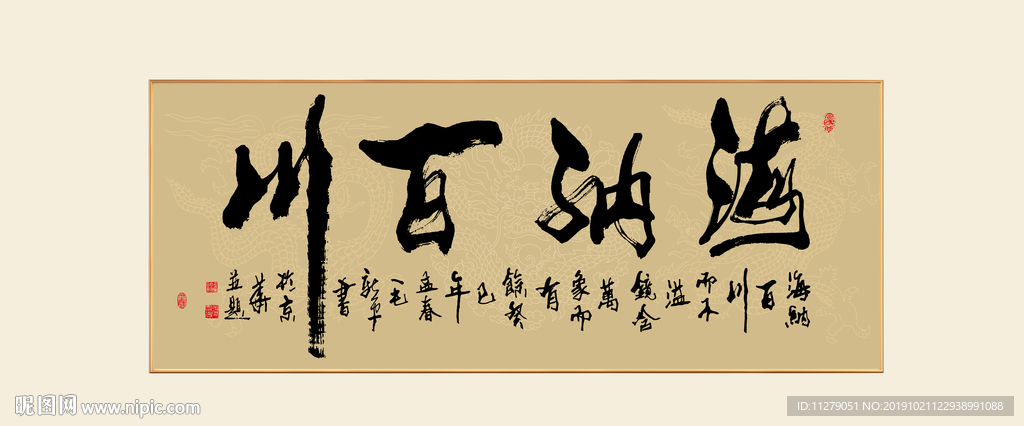 海納百川
海納
百
川
而不
溢
鏡含
萬
象而
有
餘癸
巳
年
孟春
毛
書
於京
華
並題
昵图网 www.nipic.com
ID:11279051 NO:20191021122938991088